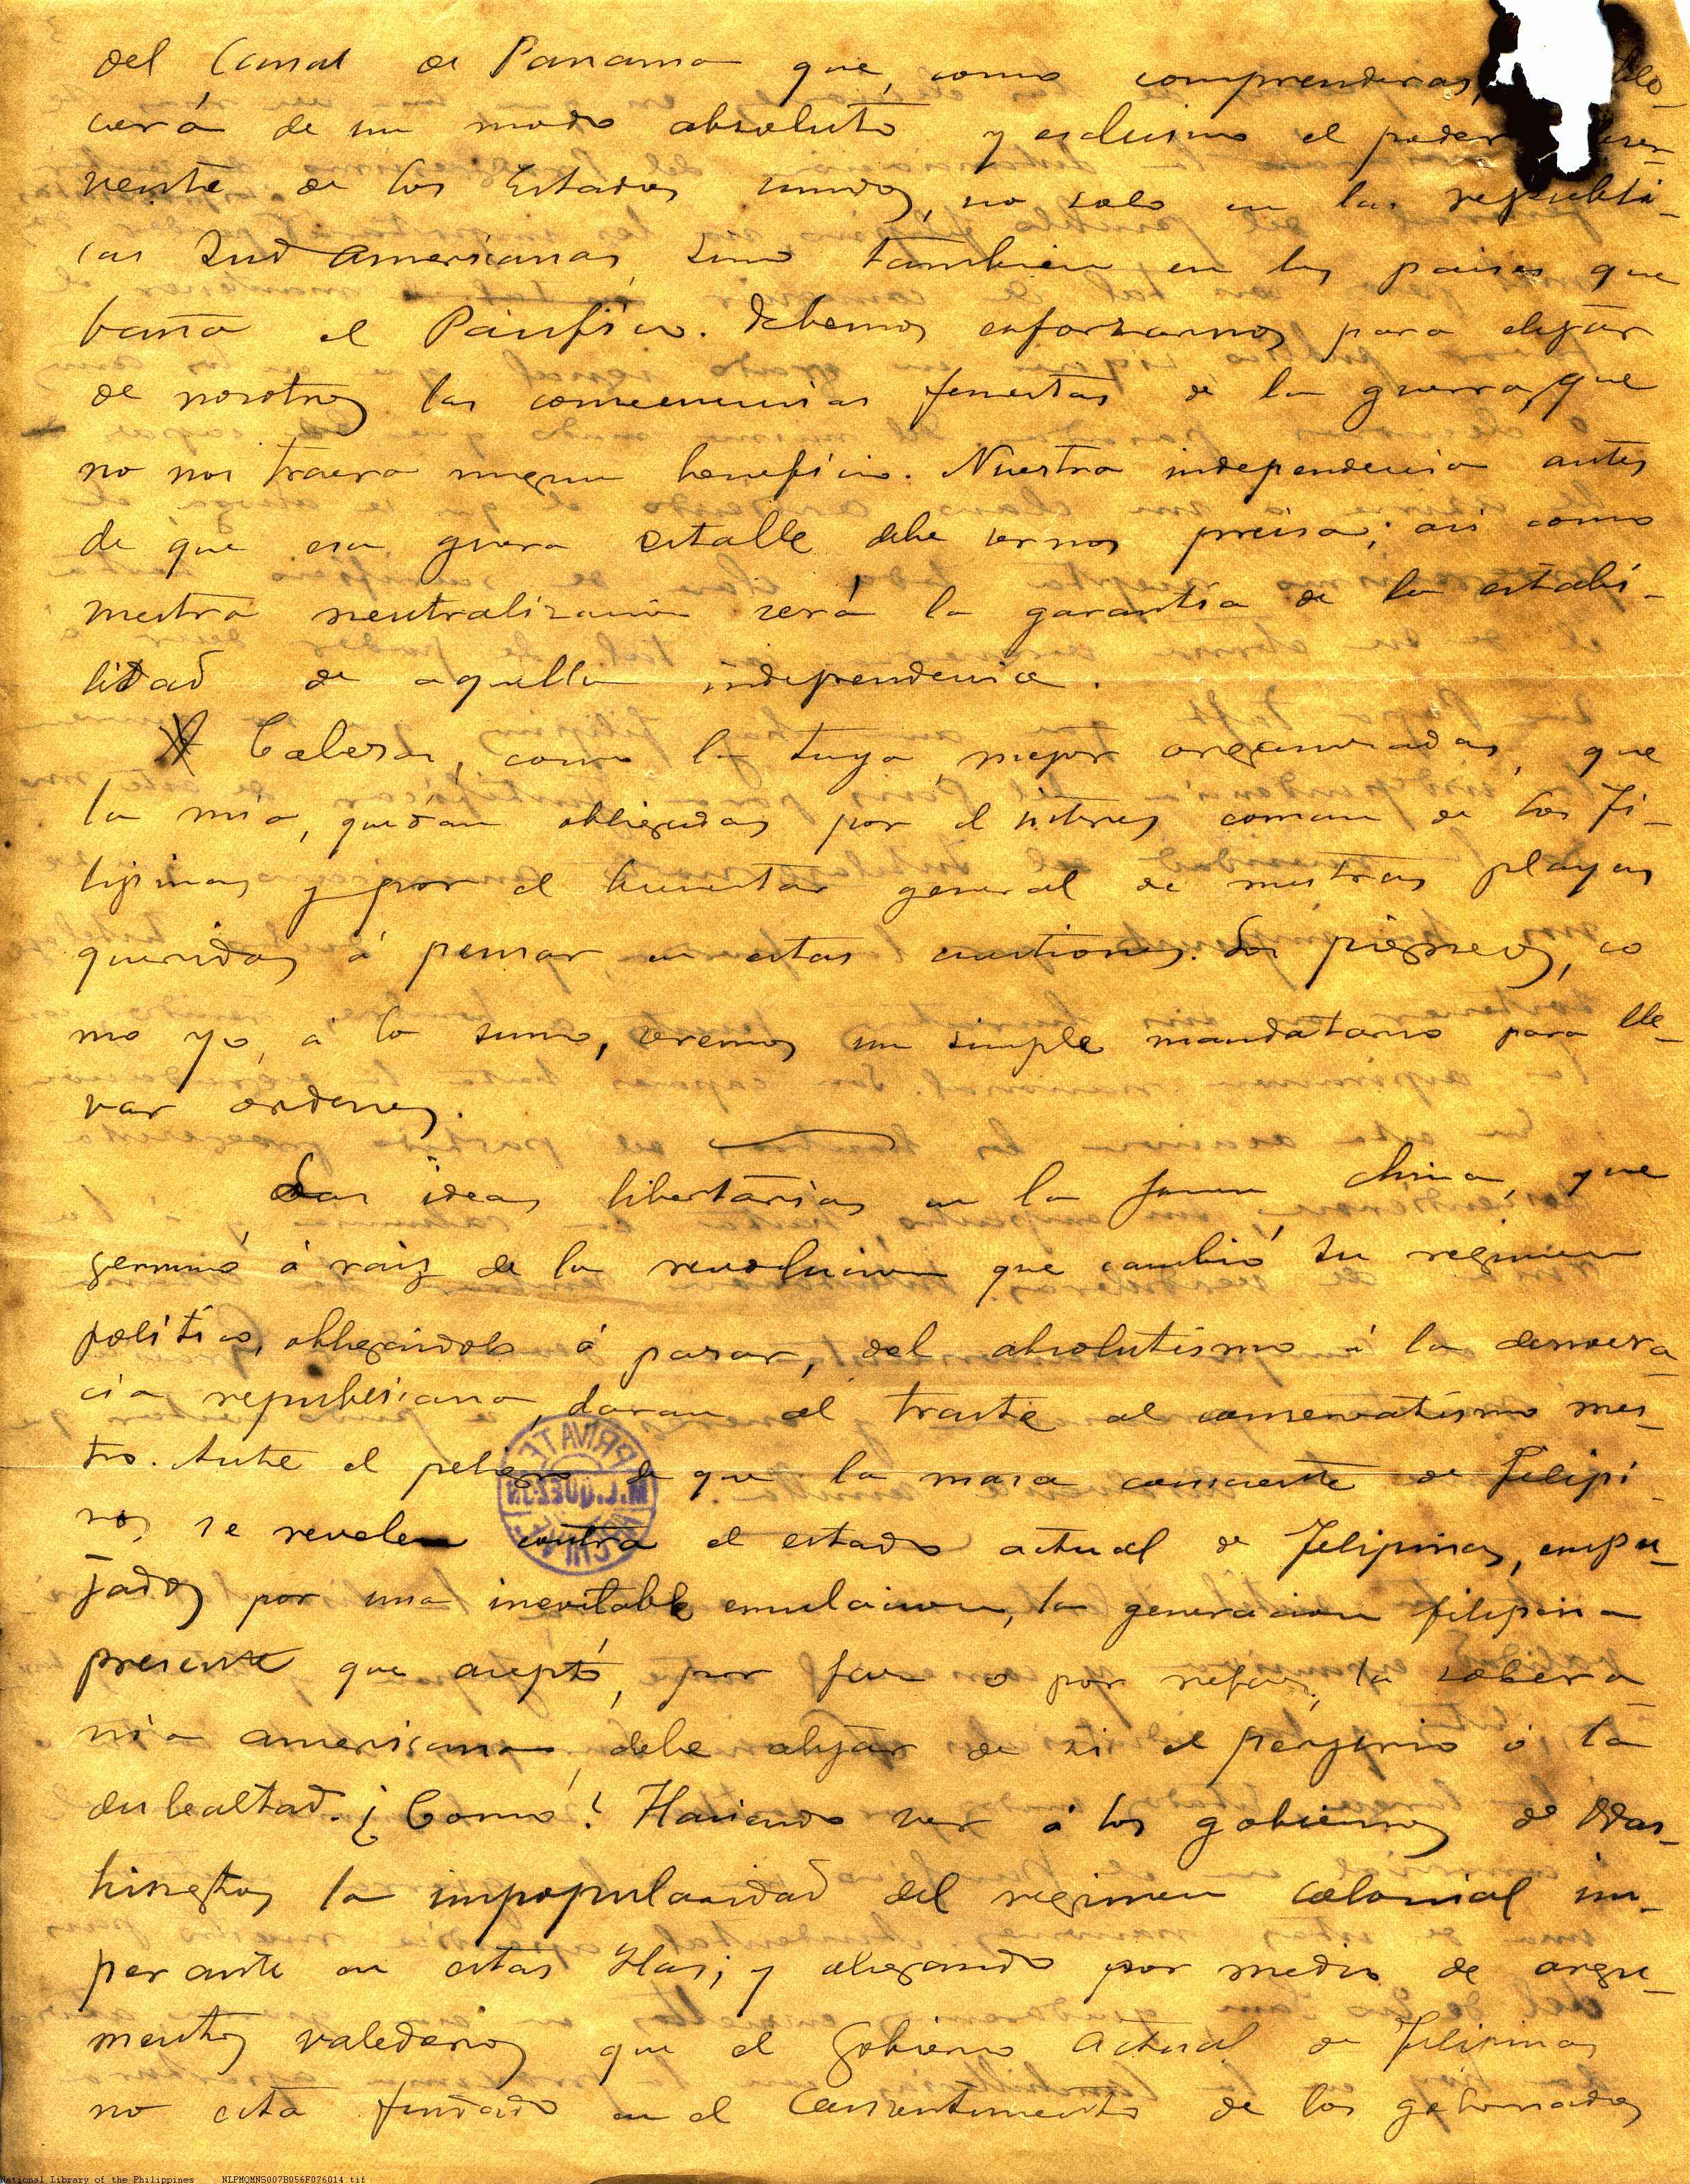 del Canal de Panama que, como comprenderas,
cerá de un modo absoluto y esclusivo el poder
vente de los Estados unidos, no solo en las republi-
cas Sud Americanas, sino tambien en los paises que
baña el Pacifico. Debemos esforzarnos para alejar
de nosotros las consecuencias funestas de la guerra, que
no nos traera ningun beneficio. Nuestra independencia antes
de que esa guerra estalle debe sernos precisa; asi como
nuestra neutralizacion será la garantia de la estabi-
lidad de aquella independencia.
Cabezas, como la tuya, mejor organizadas, que
la mia, quedan obligadas por el interes comun de los Fi-
lipinos y por el bienestar general de nuestras playas
queridas á pensar en estas cuestiones. Los pigmeos, co
mo yo, á lo sumo, seremos un simple mandatario para lle-
var ordenes.
Las ideas libertarias en la joven China, que
germinó á raiz de la revolucion que cambió su regimen
politico, obligandole á pasar, del absolutismo á la democra-
cia republicana, daran al traste al conservatismo nues-
tro. Ante el peligro de que la masa consciente de Filipi-
nos, se revelen contra el estado actual de Filipinas, empu-
jados por una inevitable emulacion, la generacion filipina
presente que aceptó, por fas o por nefas, la sobera-
nia americana, debe alejar de si el perjurio ó la
deslealtad. ¿Como? Haciendo ver á los gobiernos de Was-
hington la impopularidad del regimen colonial im-
perante en estas Islas; y alegando por medio de argu-
mentos valederos que el Gobierno Actual de Filipinas
no esta fundado en el Consentimiento de los gobernados
PRIVATE
M.L.QUEZON
ARCHIVE
National Library of the Philippines NLPMQMNS007B056F076014.tif